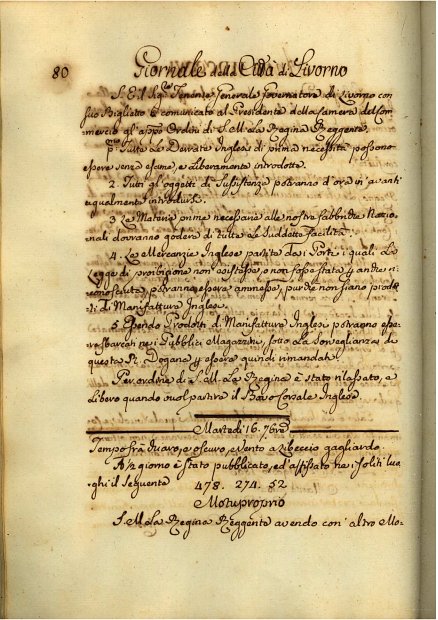 80 Giornale della Città di Livorno
S. E. Il Sig.re Tenente Generale Governatore di Livorno con
suo Biglietto à comunicato al Presidente della Camera del Com-
mercio gl'app.o Ordini di S. M. La Regina Reggente.
p.mo Tutte Le Derrate Inglesi di prima necessità possono
essere senza esame, e liberamente introdotte.
2. Tutti gl'oggetti di Sussistenza potranno d'ora in avanti
egualmente introdursi.
3. Le Materie prime necessarie alle nostre fabbriche Nazio-
nali dovranno godere di tutte Le Suddette facilità.
4. Le Mercanzie Inglesi partite da i Porti i quali La
Legge di proibizione non esistesse, o non fosse stata
conosciuta, potranno essere ammesse, purchè non siano prodot-
ti di Manifattura Inglese.
5. Essendo Prodotti di Manifattura Inglese potranno esse-
re sbarcati nei Pubblici Magazzini, sotto La Sorveglianza di
questa R. Dogana, e essere quindi rimandati.
Per ordine di S. M. La Regina è stato rilassato, e
Libero quando vuol partire il Corsale Inglese.
Martedì 16. 7bre
Tempo frà Chiaro, e oscuro, e Vento a Libeccio gagliardo.
giorno è stato pubblicato, ed affissato ne i soliti luo-
ghi il Seguente
478. 274. 52
Motuproprio
S. M. La Regina Reggente avendo con altro Mo-